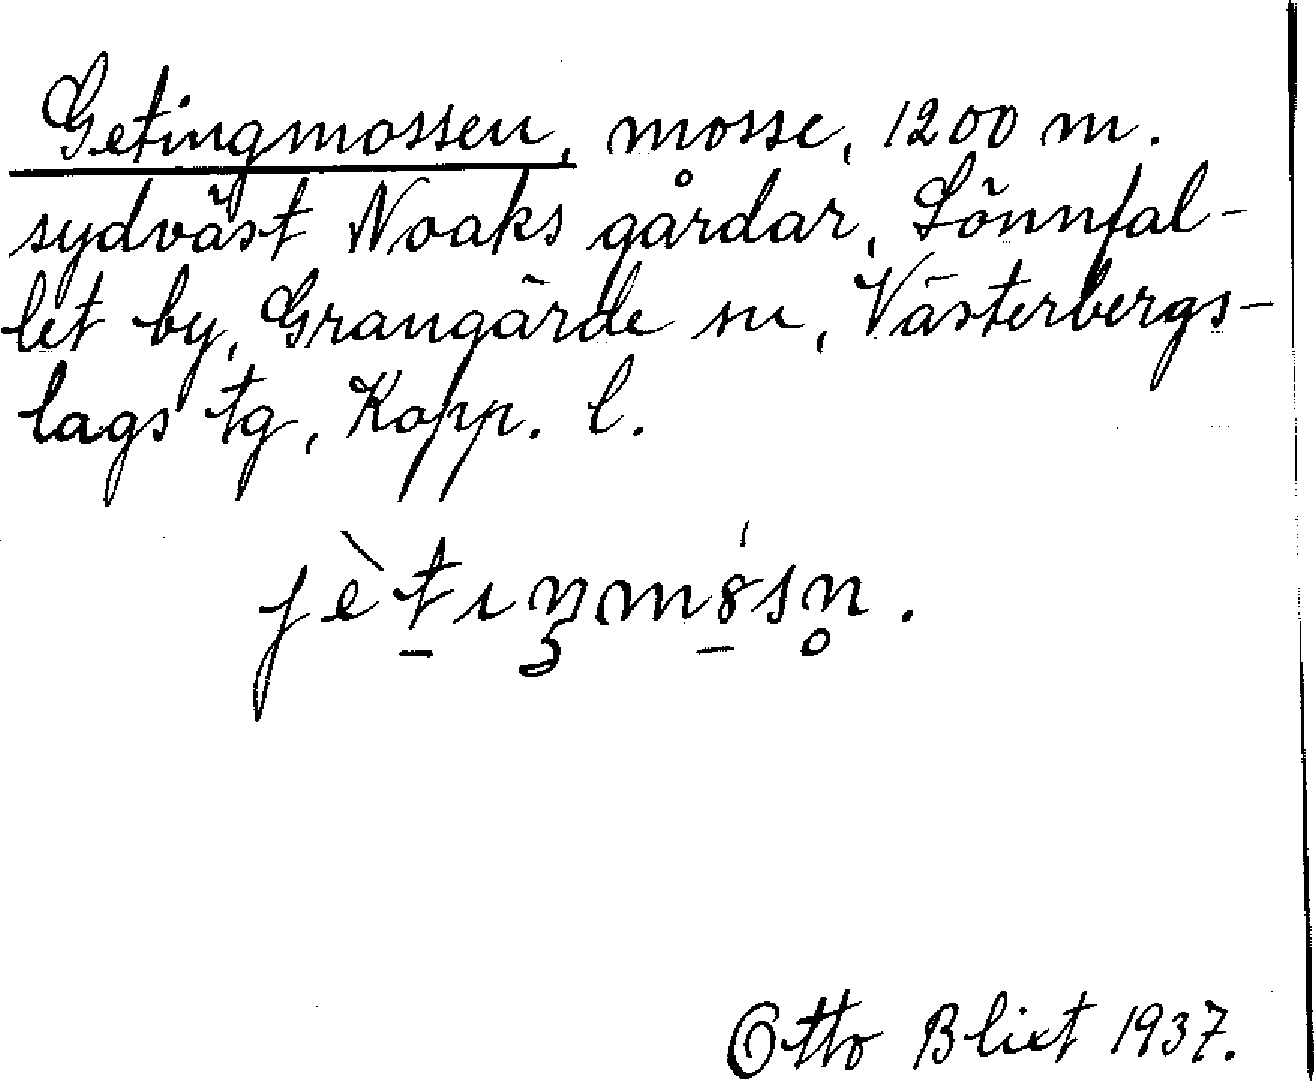 Getingmossen, mosse, 1200 m.
sydväst Noaks gårdar, Lönnfal-
let by, Grangärde sn, Västerbergs-
lags tg, Kopp. l.
Otto Blixt 1937.